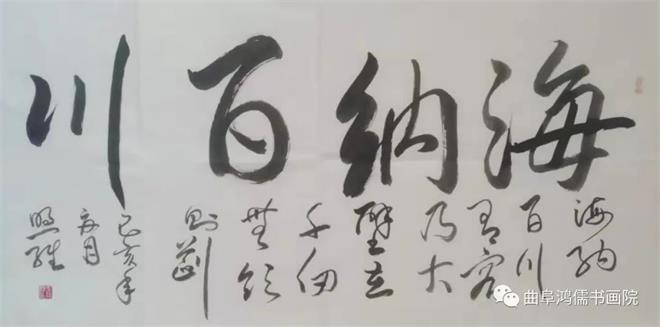 海纳百川
海纳
百川
有容
乃大
壁立
千仞
無欲
则剛
己亥年
曲阜鸿儒书画院